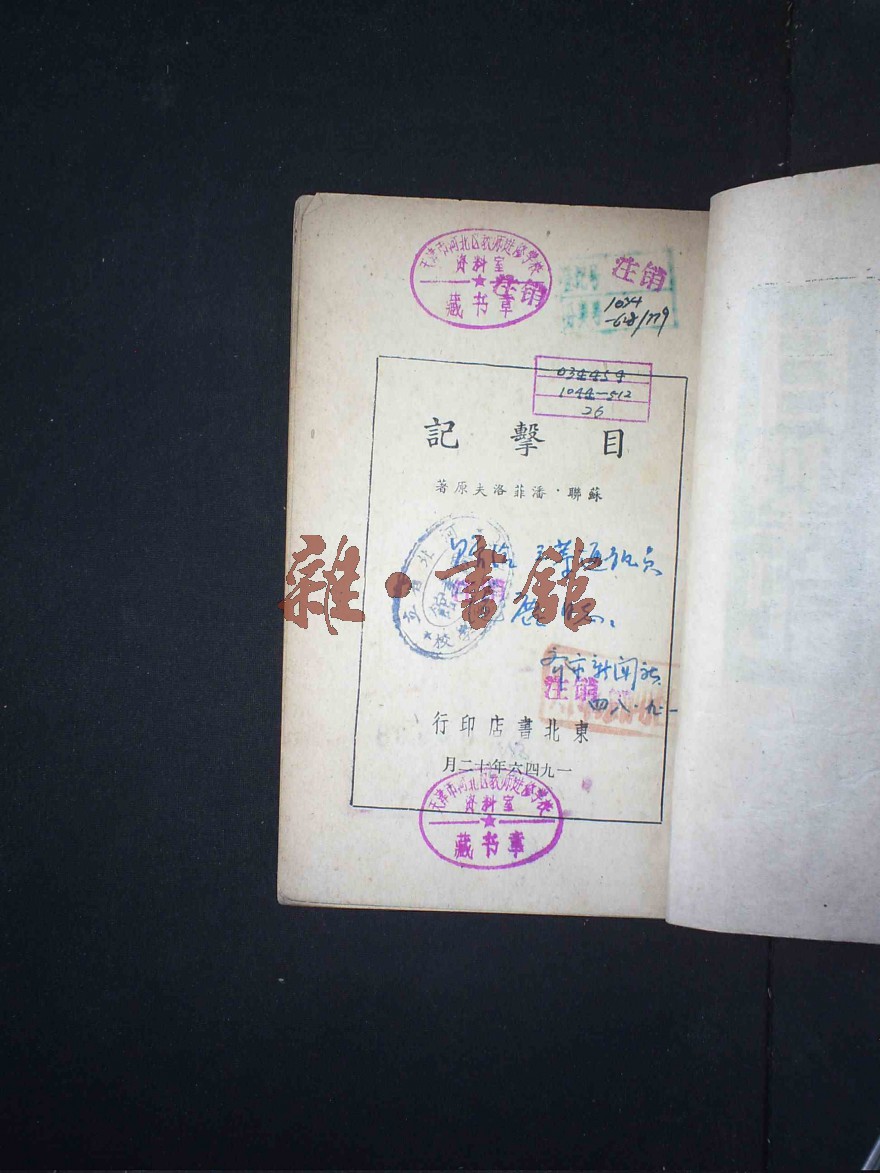 天津市河北区教师进修学校
资料室
藏书章
注销
注销
1034
034454
1044-512
26
目擊記
蘇聯·潘菲洛夫原著
雜·書館
注销
市新闻社
注销
四八·九·一
東北書店印行
一九四六年十二月
天津市河北区教师进修学校
资料室
藏书章